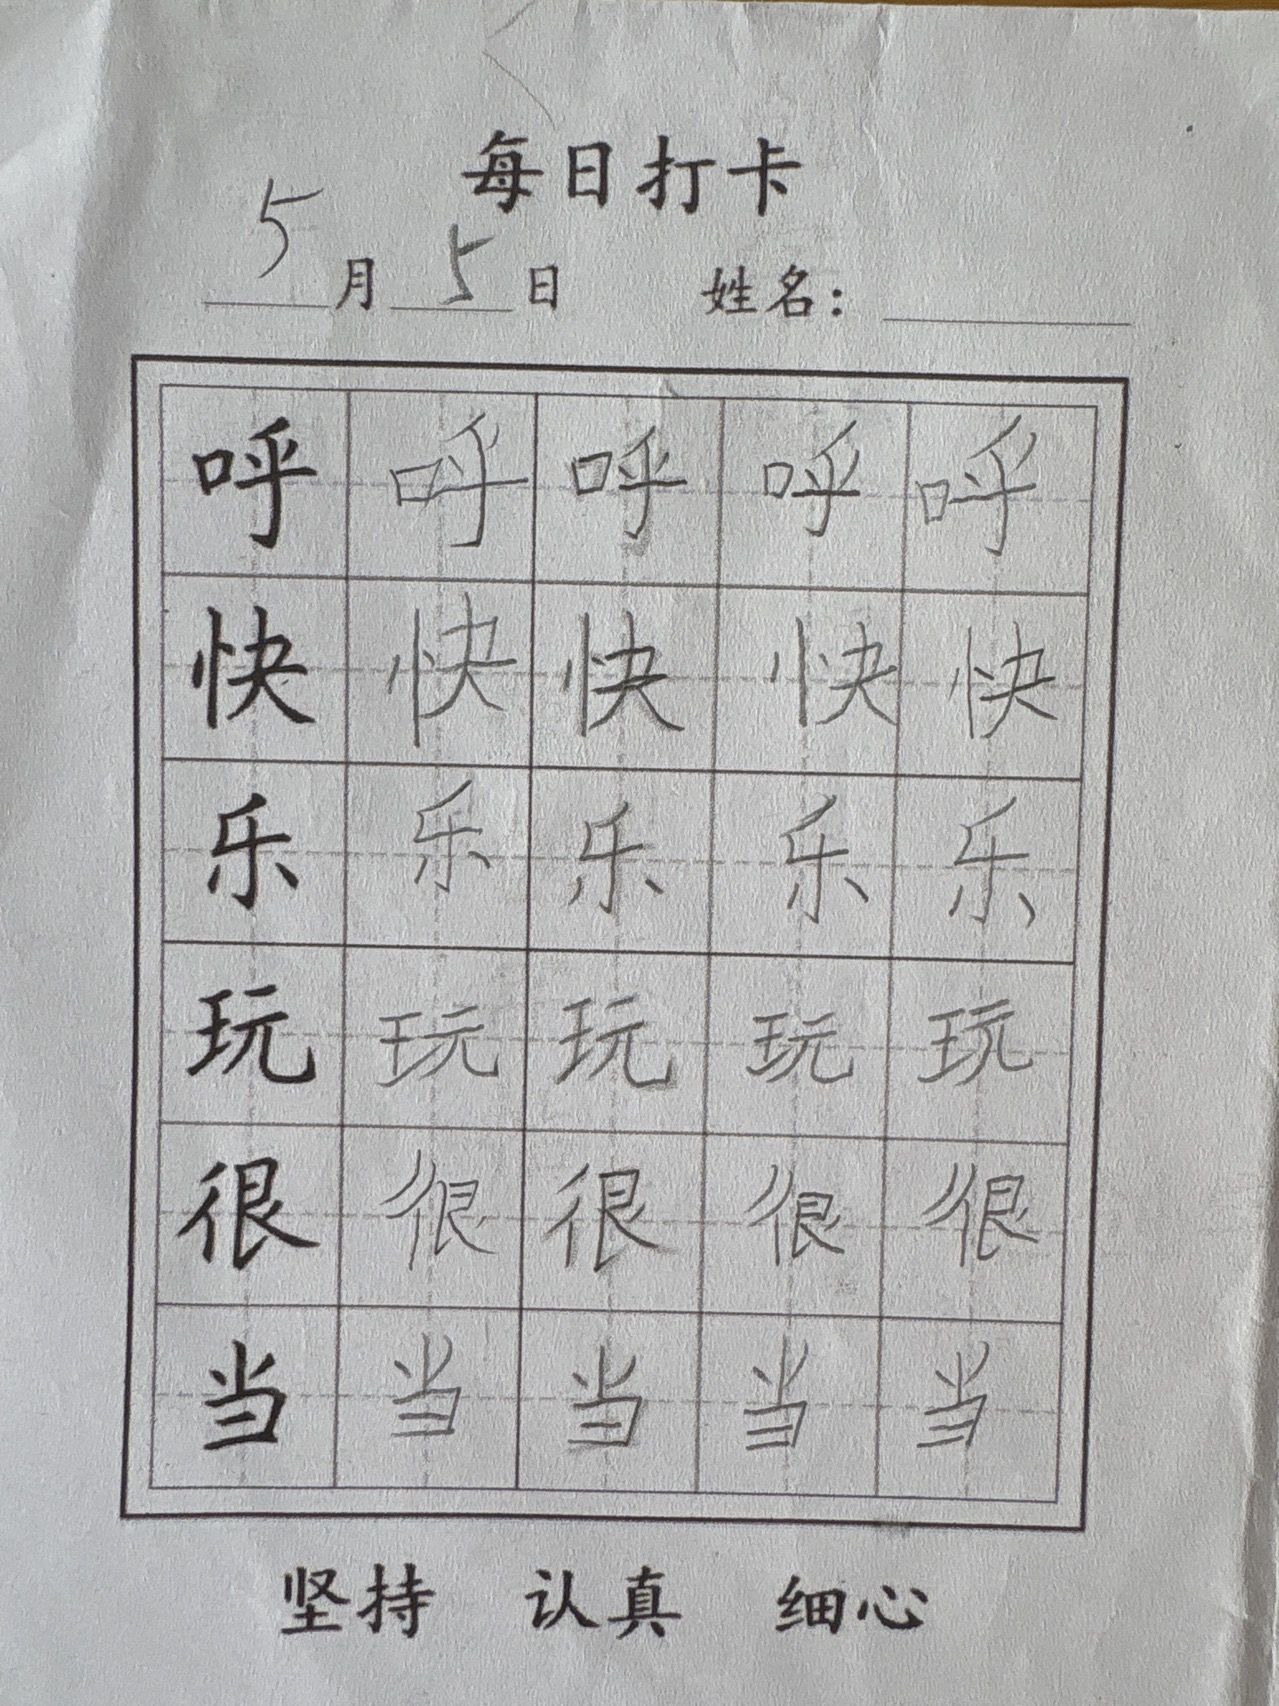 每日打卡
5月5日 姓名：
呼 呼 呼 呼 呼
快 快 快 快 快
乐 乐 乐 乐 乐
玩 玩 玩 玩 玩
很 很 很 很 很
当 当 当 当 当
坚持 认真 细心